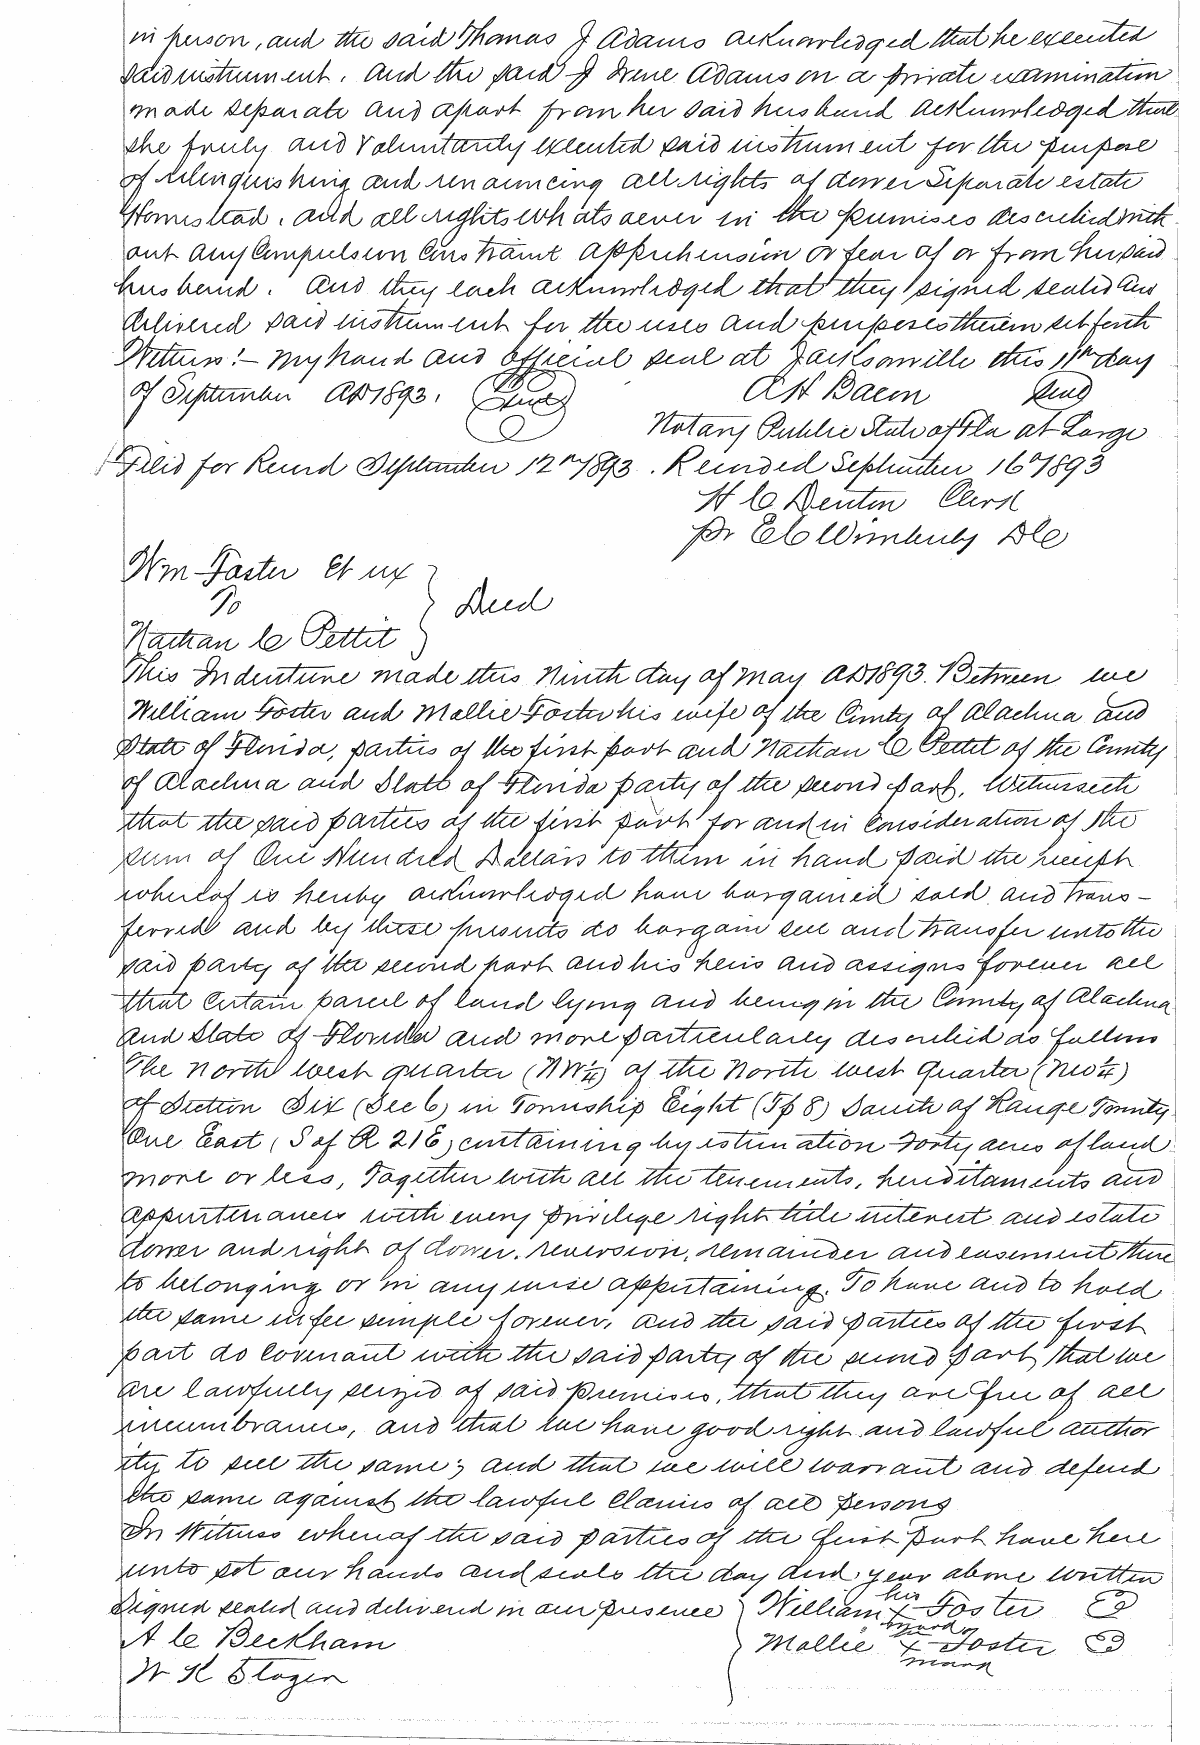 in person, and the said Thomas J Adams acknowledged that he executed
said instrument. And the said J Irene Adams on a private examination
made separate and apart from her said husband acknowledged that
she freely and voluntarily executed said instrument for the purpose
of relinquishing and renouncing all rights of dower Separate estate
Homestead. and all rights whatsoever in the premises described with
out any Compulsion Constraint apprehension or fear of or from her said
husband. And they each acknowledged that they signed sealed and
delivered said instrument for the uses and purposes therein set forth
Witness:- my hand and official seal at Jacksonville this 11th day
of September AD 1893. Seal A H Bacon Seal
Notary Public State of Fla at Large
Filed for Record September 12th/893. Recorded September 16th/893
H C Denton Clerk
Pr E C Wimberly DC
Wm Foster et ux
To
Deed
Nathan C Pettit
This Indenture made this Ninth day of May AD 1893. Between we
William Foster and Mollie Foster his wife of the County of Alachua and
State of Florida, parties of the first part and Nathan C Pettit of the County
of Alachua and State of Florida party of the second part, Witnesseth
that the said parties of the first part for and in consideration of the
sum of One Hundred Dollars to them in hand paid the receipt
whereof is hereby acknowledged have bargained sold and trans-
ferred and by these presents do bargain sell and transfer unto the
said party of the second part and his heirs and assigns forever all
that certain parcel of land lying and being in the County of Alachua
and State of Florida and more particularly described as follows
The North west quarter (NW¼) of the North west quarter (NW¼)
of Section Six (Sec 6) in Township Eight (Tp 8) South of Range Twenty
One East (S of R 21 E) containing by estimation Forty acres of land
more or less, Together with all the tenements, hereditaments and
appurtenances with every privilege right title interest and estate
dower and right of dower, reversion, remainder and easement there
to belonging or in any wise appertaining, To have and to hold
the same in fee simple forever, and the said parties of the first
part do covenant with the said party of the second part, that we
are lawfully seized of said premises, that they are free of all
incumbrances, and that we have good right and lawful author
ity to sell the same; and that we will warrant and defend
the same against the lawful claims of all persons
In Witness whereof the said parties of the first part have here
unto set our hands and seals the day and year above written
Signed sealed and delivered in our presence William his x mark Foster
A C Beckham Mollie x mark Foster
W K